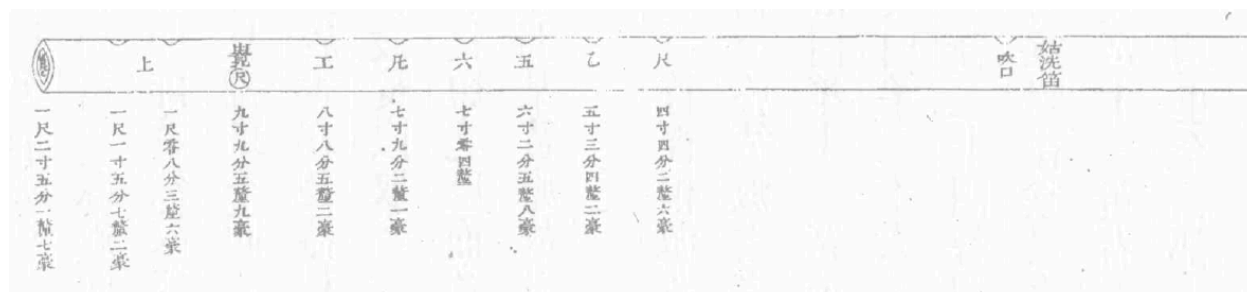 姑洗笛
吹口
尺
四寸四分二釐六豪
乙
五寸三分四釐二豪
五
六寸二分五釐八豪
六
七寸零四釐
凡
七寸九分二釐一豪
工
八寸八分五釐二豪
尺
九寸九分五釐九豪
上
一尺零八分三釐六豪
一尺一寸五分七釐二豪
一尺二寸五分一釐七豪